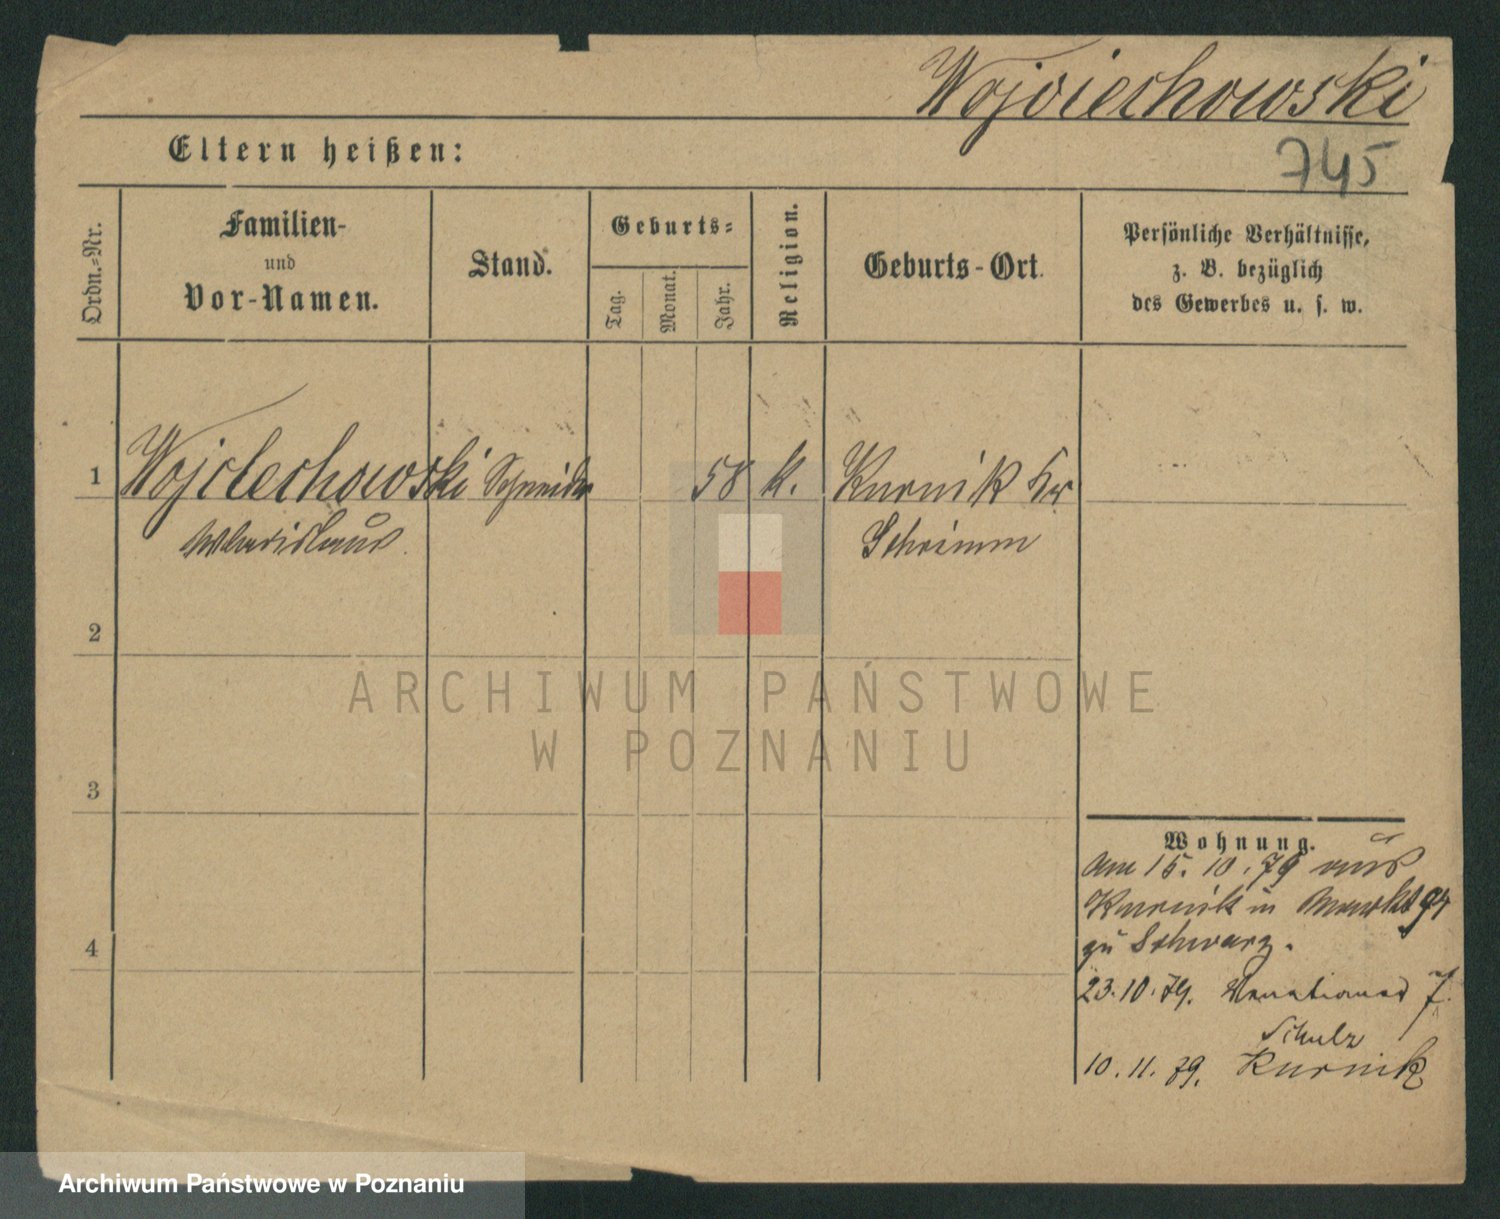 Wojciechowski
745
Eltern heißen:
Ordn.-Nr.
Familien-
und
Vor-Namen.
Stand.
Geburts-
Tag.
Monat.
Jahr.
Religion.
Geburts-Ort.
Persönliche Verhältnisse,
z. B. bezüglich
des Gewerbes u. s. w.
1 Wojciechowski Schneider 58 k. Kurnik Kr
Schrimm
2
3
4
Wohnung.
am 15.10.79 aus
Kurnik in Markt 94
zu Schwarz.
23.10.79. 7.
Schulz
10.11.79. Kurnik
ARCHIWUM PAŃSTWOWE
W POZNANIU
Archiwum Państwowe w Poznaniu